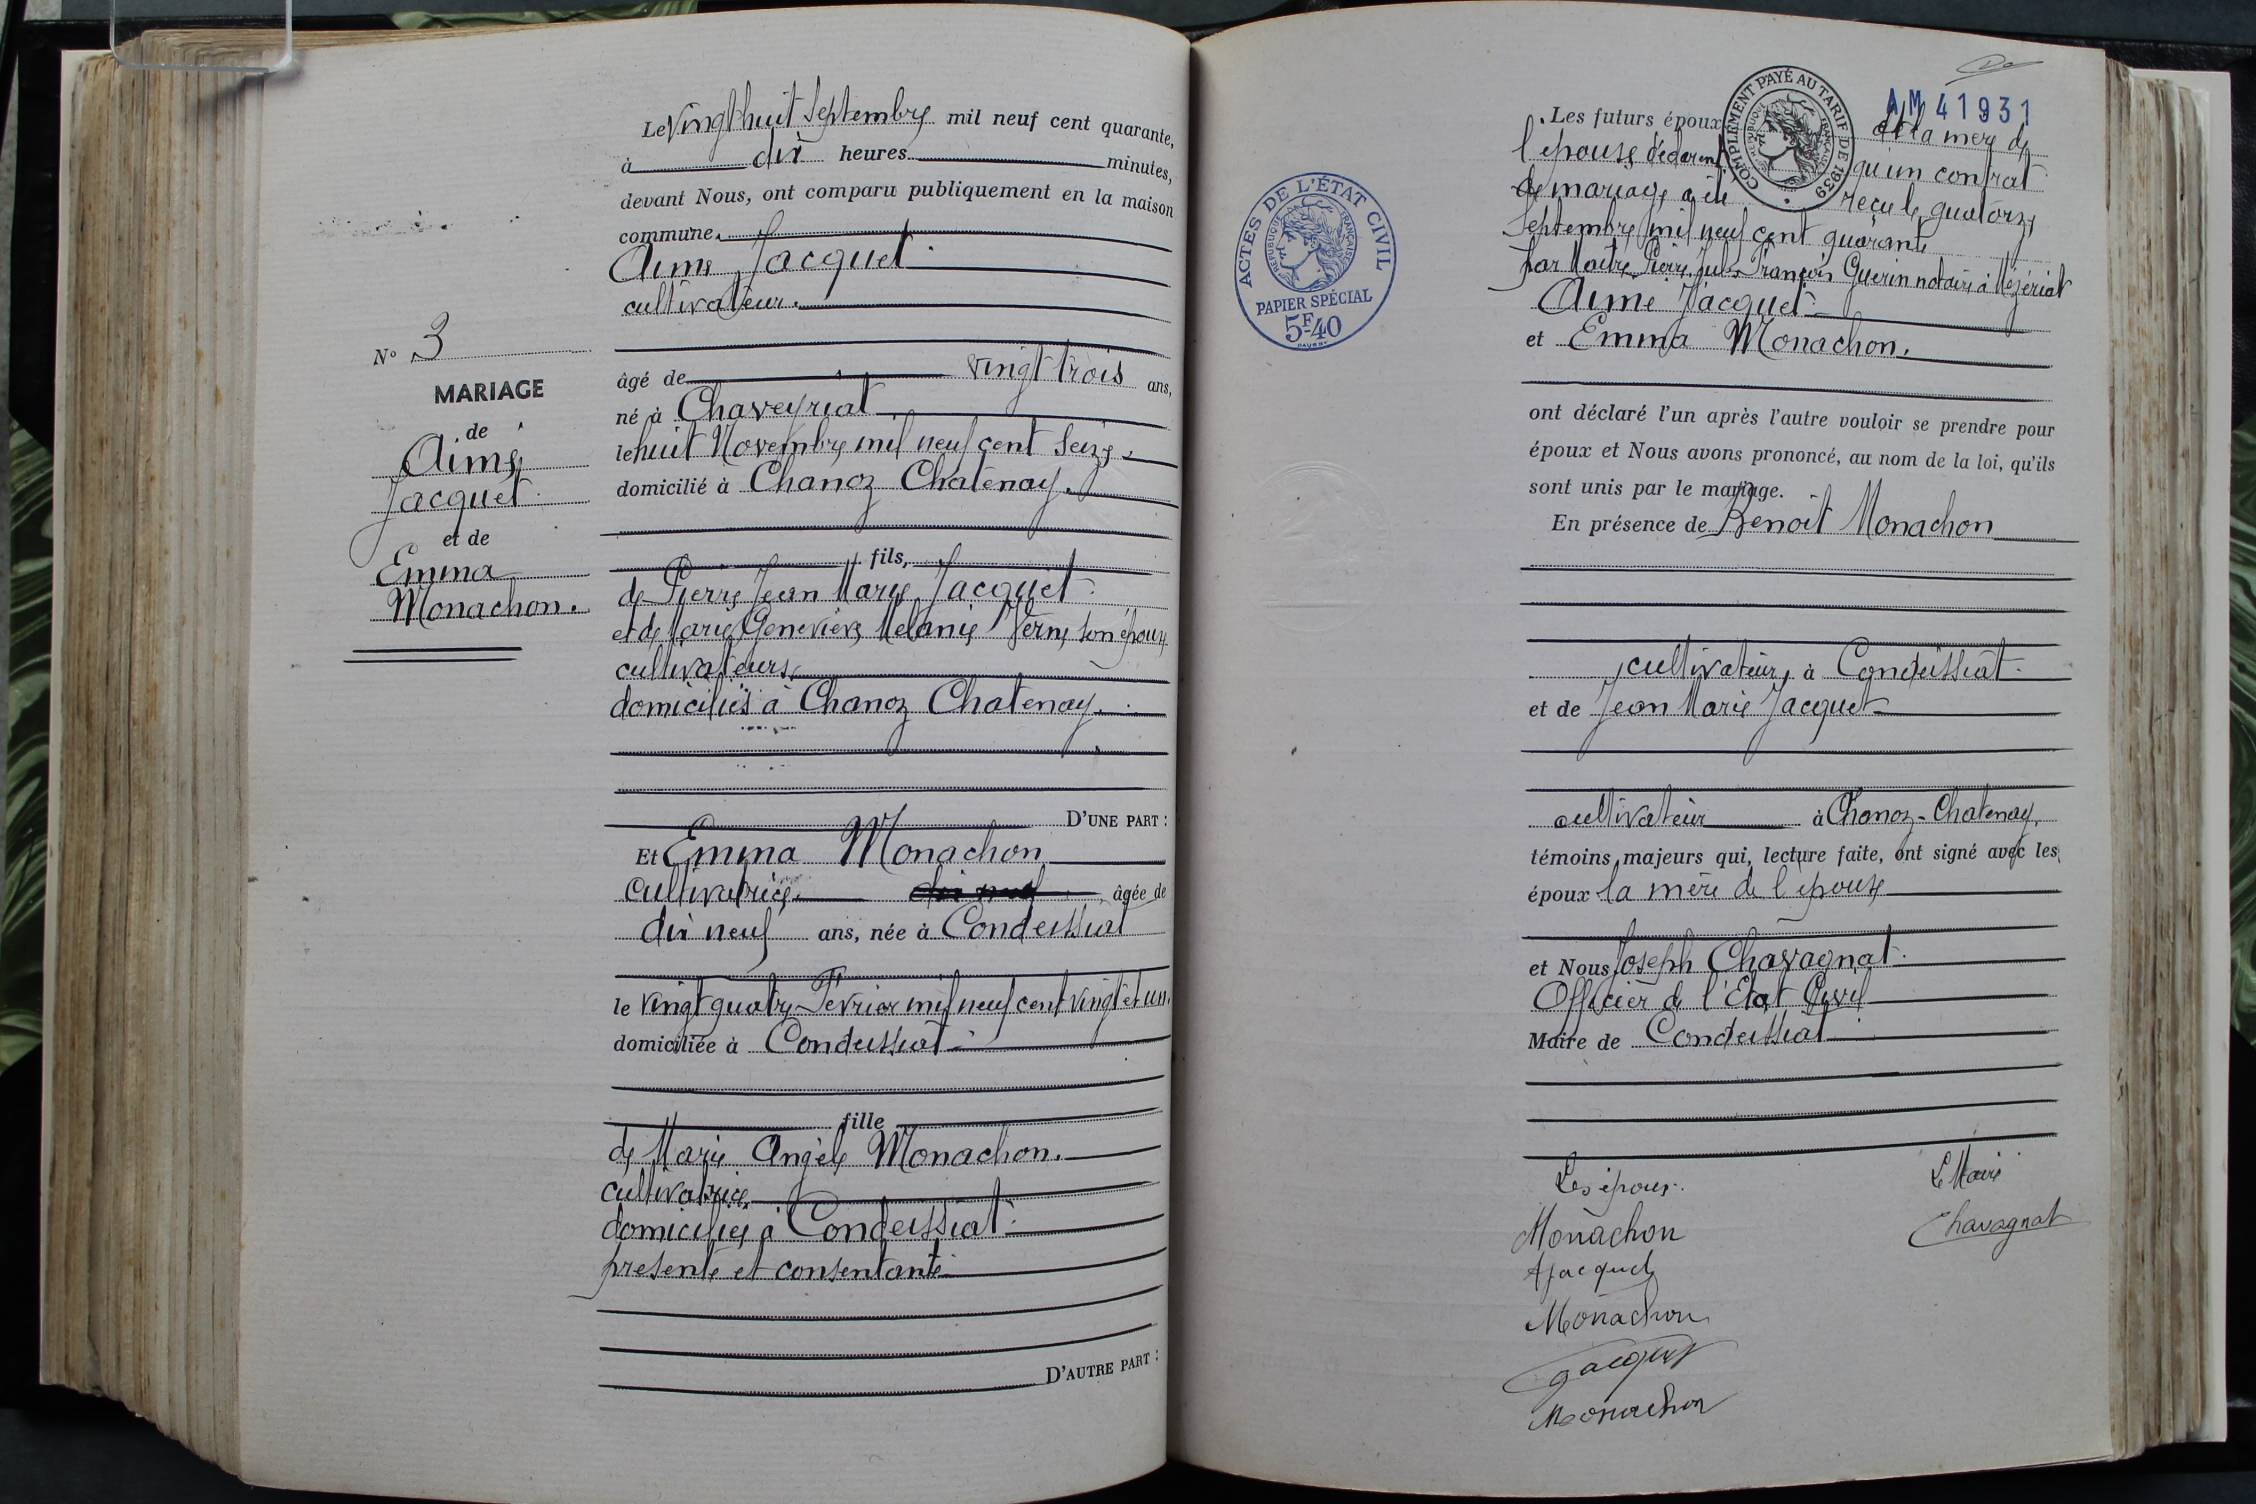 N° 3
MARIAGE
de
Aimé
Jacquet
et de
Emma
Monachon.
Le vingt huit Septembre mil neuf cent quarante,
à dix heures minutes,
devant Nous, ont comparu publiquement en la maison
commune.
Aimé Jacquet
cultivateur.
âgé de vingt trois ans,
né à Chaveyriat
le huit Novembre mil neuf cent Seize
domicilié à Chanoz Chatenay.
fils,
de Pierre Jean Marie Jacquet
et de Marie Geneviève Mélanie Verne son épouse
cultivateurs
domiciliés à Chanoz Chatenay.
D'UNE PART :
Et Emma Monachon
Cultivatrice dix neuf , âgée de
dix neuf ans, née à Condeissiat
le vingt quatre Février mil neuf cent vingt et un.
domiciliée à Condeissiat
fille
de Marie Angèle Monachon.
cultivatrice
domiciliée à Condeissiat
présente et consentante
D'AUTRE PART :
ACTES DE L'ÉTAT CIVIL
RÉPUBLIQUE FRANÇAISE
PAPIER SPÉCIAL
5F-40
COMPLÉMENT PAYÉ AU TARIF DE 1939
RÉPUBLIQUE FRANÇAISE
AM 41931
Les futurs époux et la mère de
l'épouse déclarent qu'un contrat
de mariage a été reçu le quatorze
Septembre mil neuf cent quarante
par Maître Pierre Jules François Guerin notaire à Mézériat
Aimé Jacquet
et Emma Monachon.
ont déclaré l'un après l'autre vouloir se prendre pour
époux et Nous avons prononcé, au nom de la loi, qu'ils
sont unis par le mariage.
En présence de Benoit Monachon
cultivateur, à Condeissiat
et de Jean Marie Jacquet
cultivateur à Chanoz-Chatenay,
témoins majeurs qui, lecture faite, ont signé avec les
époux la mère de l'épouse
et Nous Joseph Chavagnat
Officier de l'Etat Civil
Maire de Condeissiat
Les époux. Le Maire
Monachon Chavagnat
A Jacquet
Monachon
Jacquet
Monachon